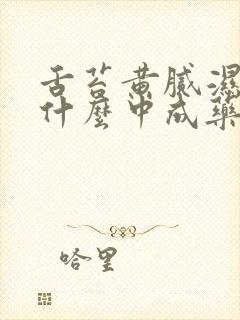 舌苔黄腻濕
什麼中成藥
哈里